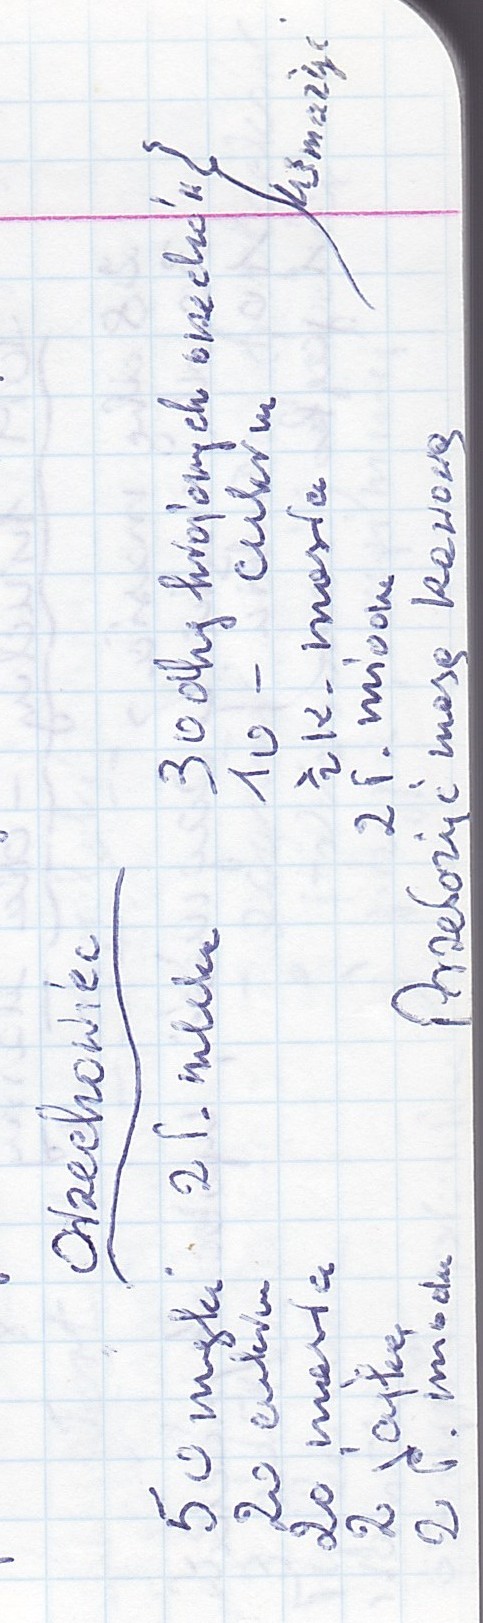 Orzechowiec
50 mąki 2 ł. mleka
20 cukru
20 masła
2 jajka
2 ł. miodu
30 dkg krojonych orzechów
10 - cukru
½ k. masła
2 ł. miodu
usmażyć
Przełożyć masą kawową